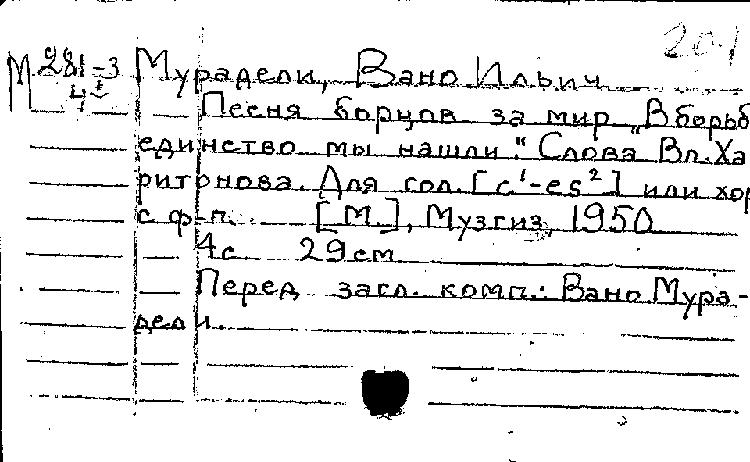 201
М 281-3 Мурадели, Вано Ильич
4
Песня борцов за мир „В борьб
единство мы нашли." Слова Вл. Ха
ритонова. Для гол. [c¹-es²] или хор
с ф-п. [М.], Музгиз, 1950
4с 29см
Перед загл. комп.: Вано Мура-
дели.